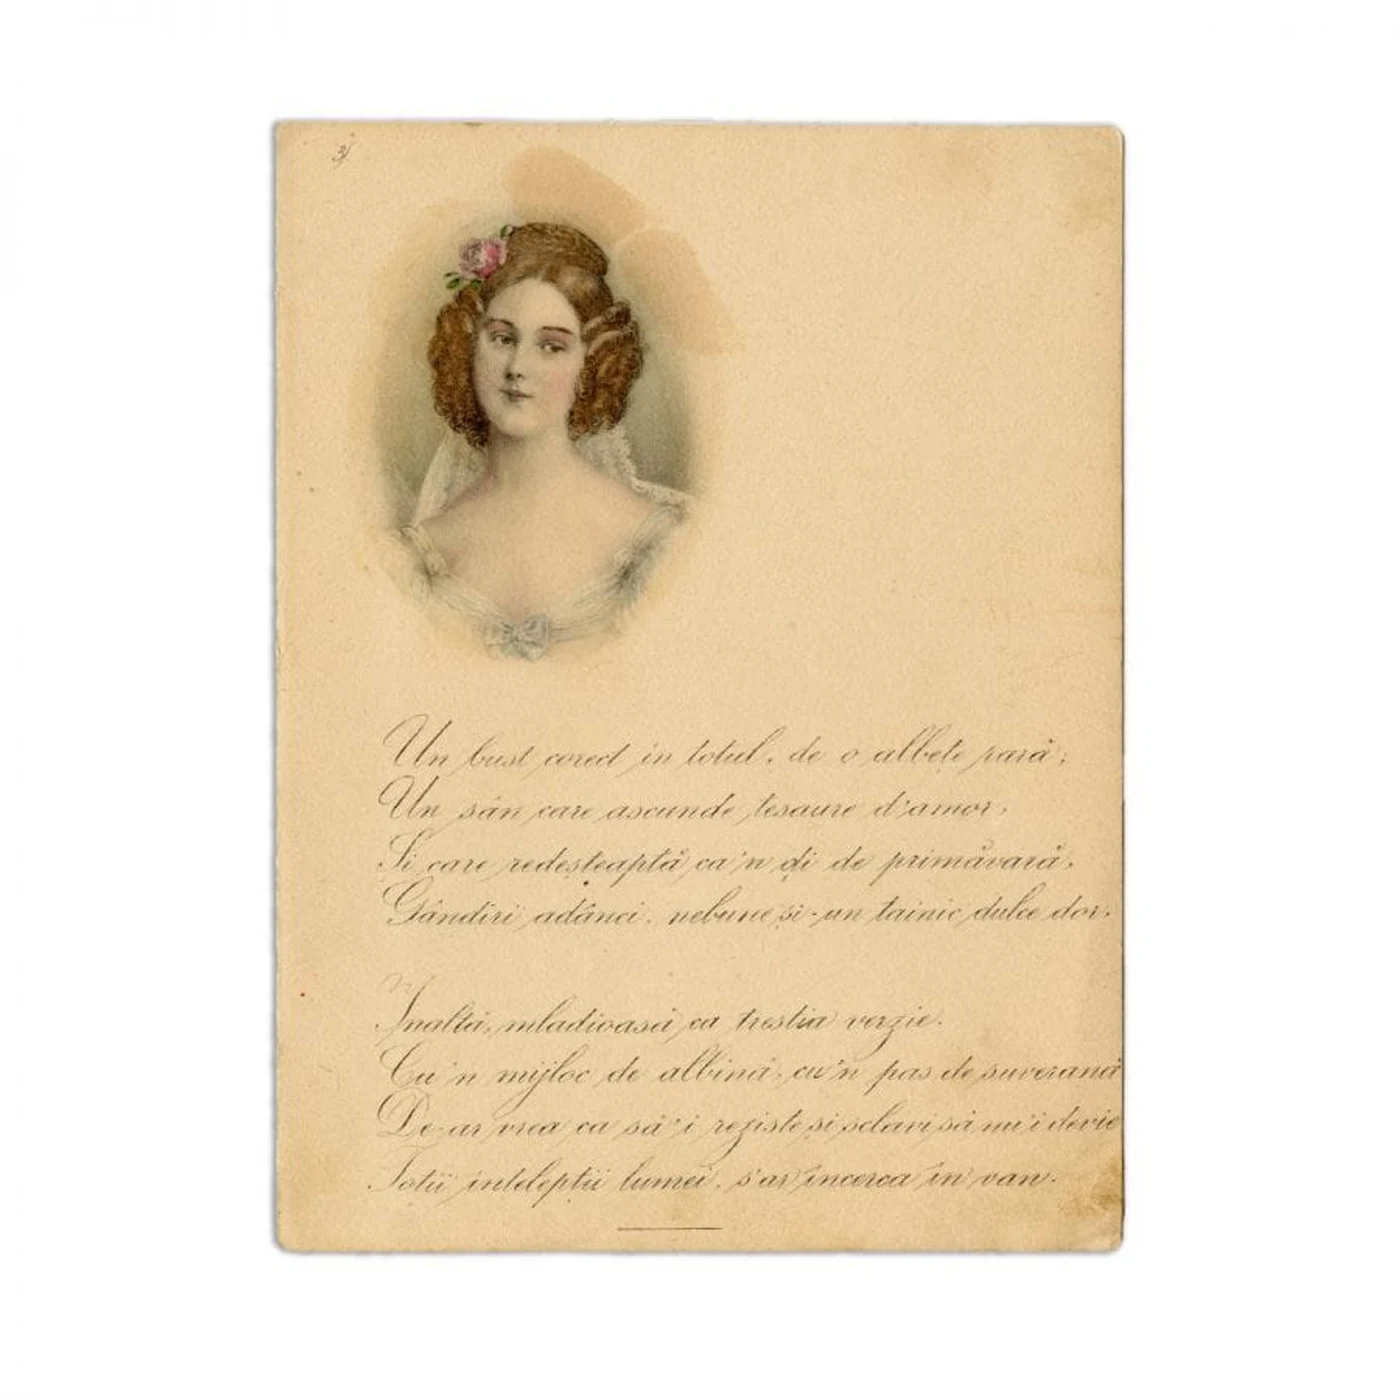 3)
Un bust corect în totul, de o albețe rară;
Un sân care ascunde tesaure d'amor,
Si care redeșteaptă ca'n di de primăvară,
Gândiri adânci, nebune și-un tainic dulce dor.
Inaltă, mladioasă ca trestia verzie.
Cu'n mijloc de albină, cu'n pas de suverană
De-ar vrea ca să'i reziste și sclavi să nu'i devie
Totii intelepții lumei, s'ar incerca în van.